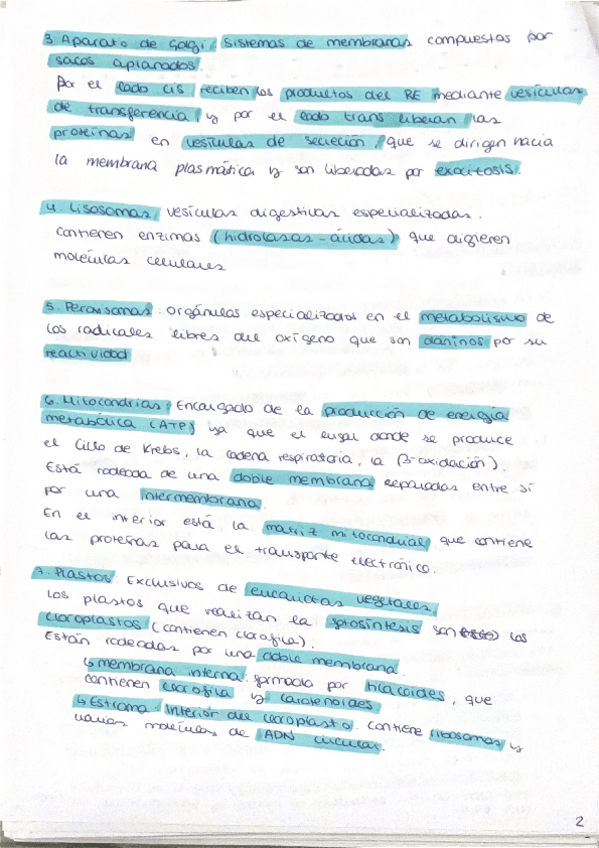 3. Aparato de Golgi: Sistemas de membranas compuestas por
sacos aplanados.
Por el lado cis reciben los productos del RE mediante vesículas
de transferencia, y por el lado trans liberan las
proteínas en vesículas de secreción, que se dirigen hacia
la membrana plasmática y son liberadas por exocitosis.
4. Lisosomas: vesículas digestivas especializadas.
Contienen enzimas (hidrolasas-ácidas) que digieren
moléculas celulares
5. Peroxisomas: orgánulos especializados en el metabolismo de
los radicales libres del oxígeno que son dañinos por su
reactividad
6. Mitocondrias: Encargado de la producción de energía
metabólica (ATP) ya que el lugar donde se produce
el Ciclo de Krebs, la cadena respiratoria, la β-oxidación).
Está rodeada de una doble membrana separadas entre sí
por una intermembrana.
En el interior está la matriz mitocondrial que contiene
las proteínas para el transporte electrónico.
7. Plastos: Exclusivos de eucariotas vegetales,
los plastos que realizan la fotosíntesis son los
cloroplastos (contienen clorofila).
Están rodeadas por una doble membrana.
↳ membrana interna: formada por tilacoides, que
contienen clorofila y carotenoides.
↳ Estroma: Interior del cloroplasto. Contiene ribosomas y
varias moléculas de ADN circular.
2